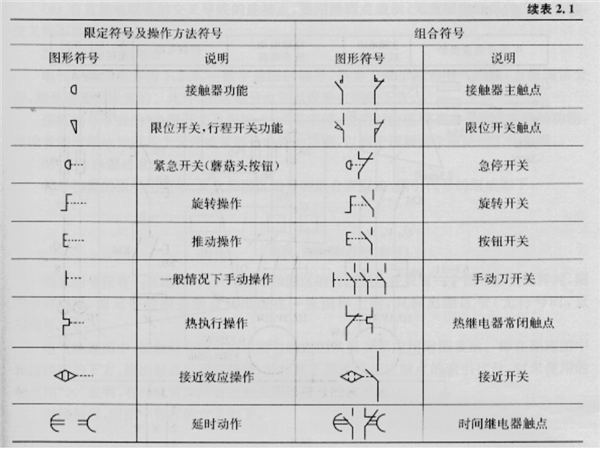 续表 2.1
限定符号及操作方法符号 组合符号
图形符号 说明 图形符号 说明
接触器功能 接触器主触点
限位开关,行程开关功能 限位开关触点
紧急开关(蘑菇头按钮) 急停开关
旋转操作 旋转开关
推动操作 按钮开关
一般情况下手动操作 手动刀开关
热执行操作 热继电器常闭触点
接近效应操作 接近开关
延时动作 时间继电器触点